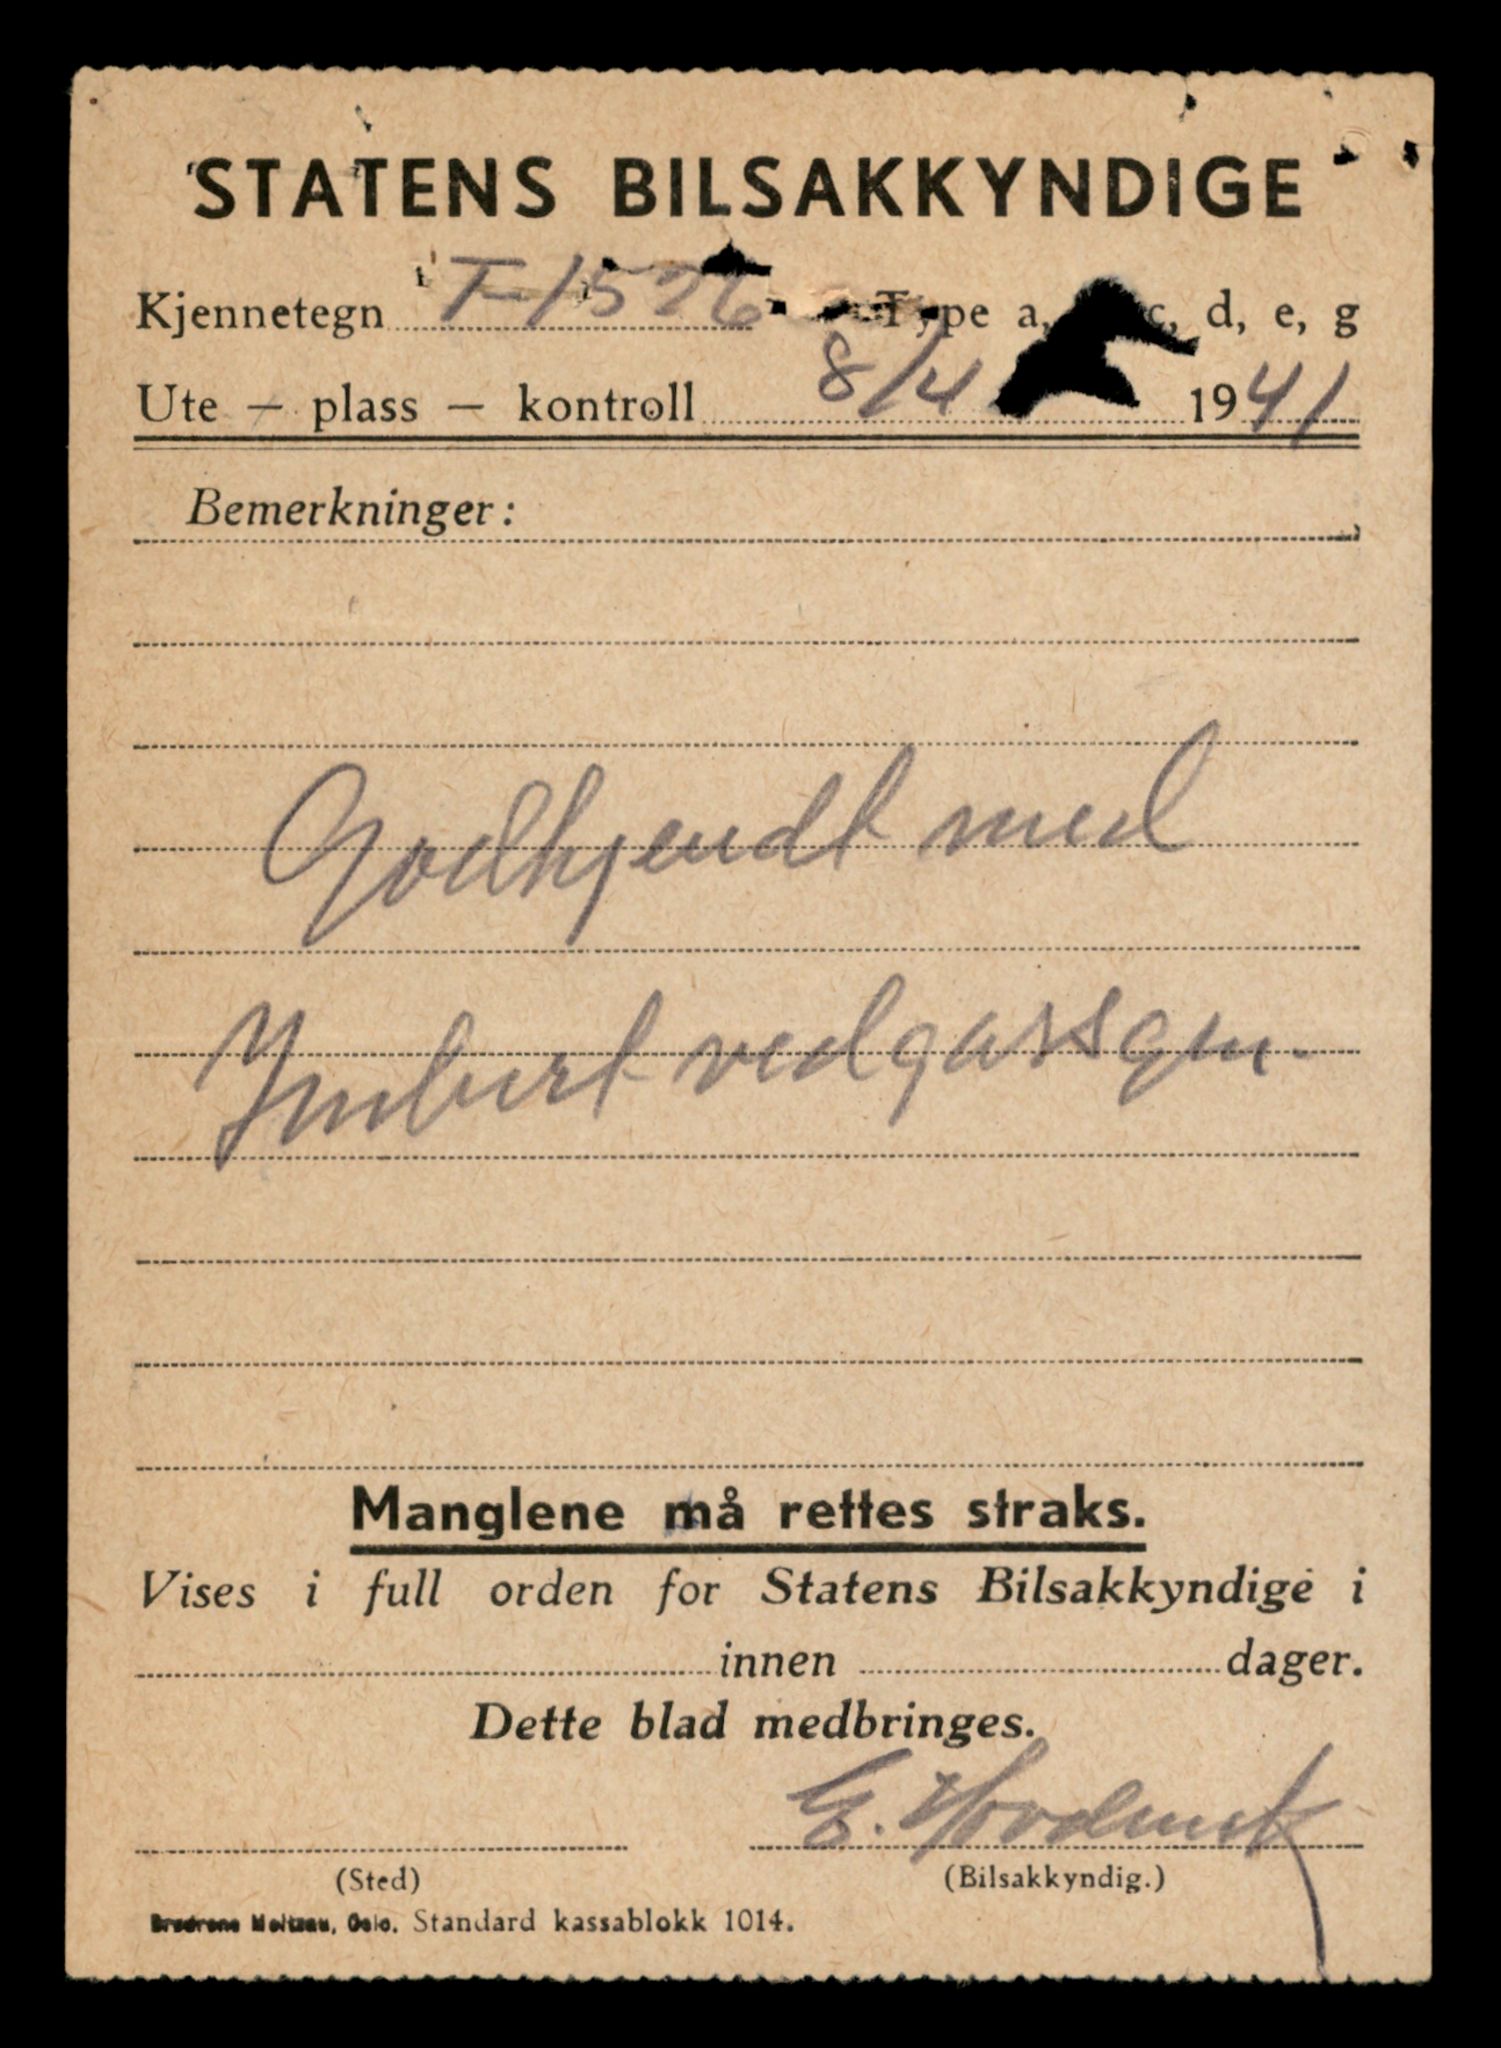 STATENS BILSAKKYNDIGE
Kjennetegn T-1526 Type a, c, d, e, g
Ute – plass – kontroll 8/4 1941
Bemerkninger:
Godkjendt med
Imbert vedgassgen.
Manglene må rettes straks.
Vises i full orden for Statens Bilsakkyndige i
innen dager.
Dette blad medbringes.
E.
(Sted) (Bilsakkyndig.)
Brødrene Meltzau, Oslo. Standard kassablokk 1014.